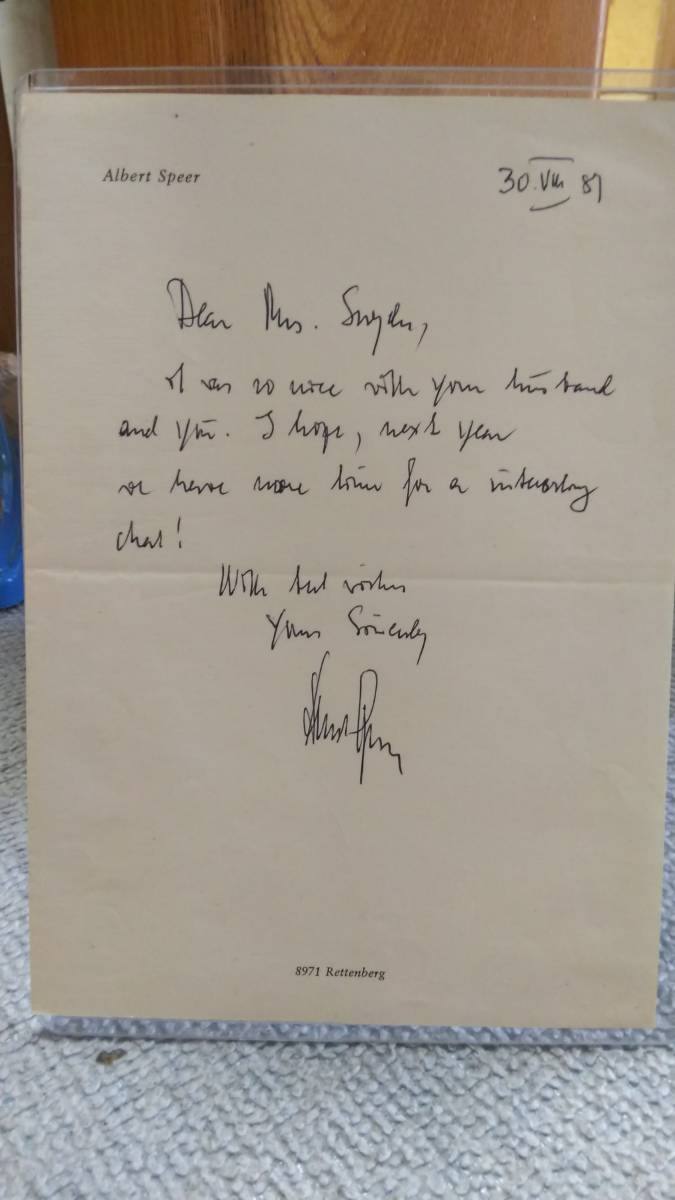 Albert Speer
30. VIII 81
Dear Mrs. Snyder,
it was so nice with your husband
and you. I hope, next year
we have more time for a interesting
chat!
With best wishes
Yours Sincerely
Albert Speer
8971 Rettenberg